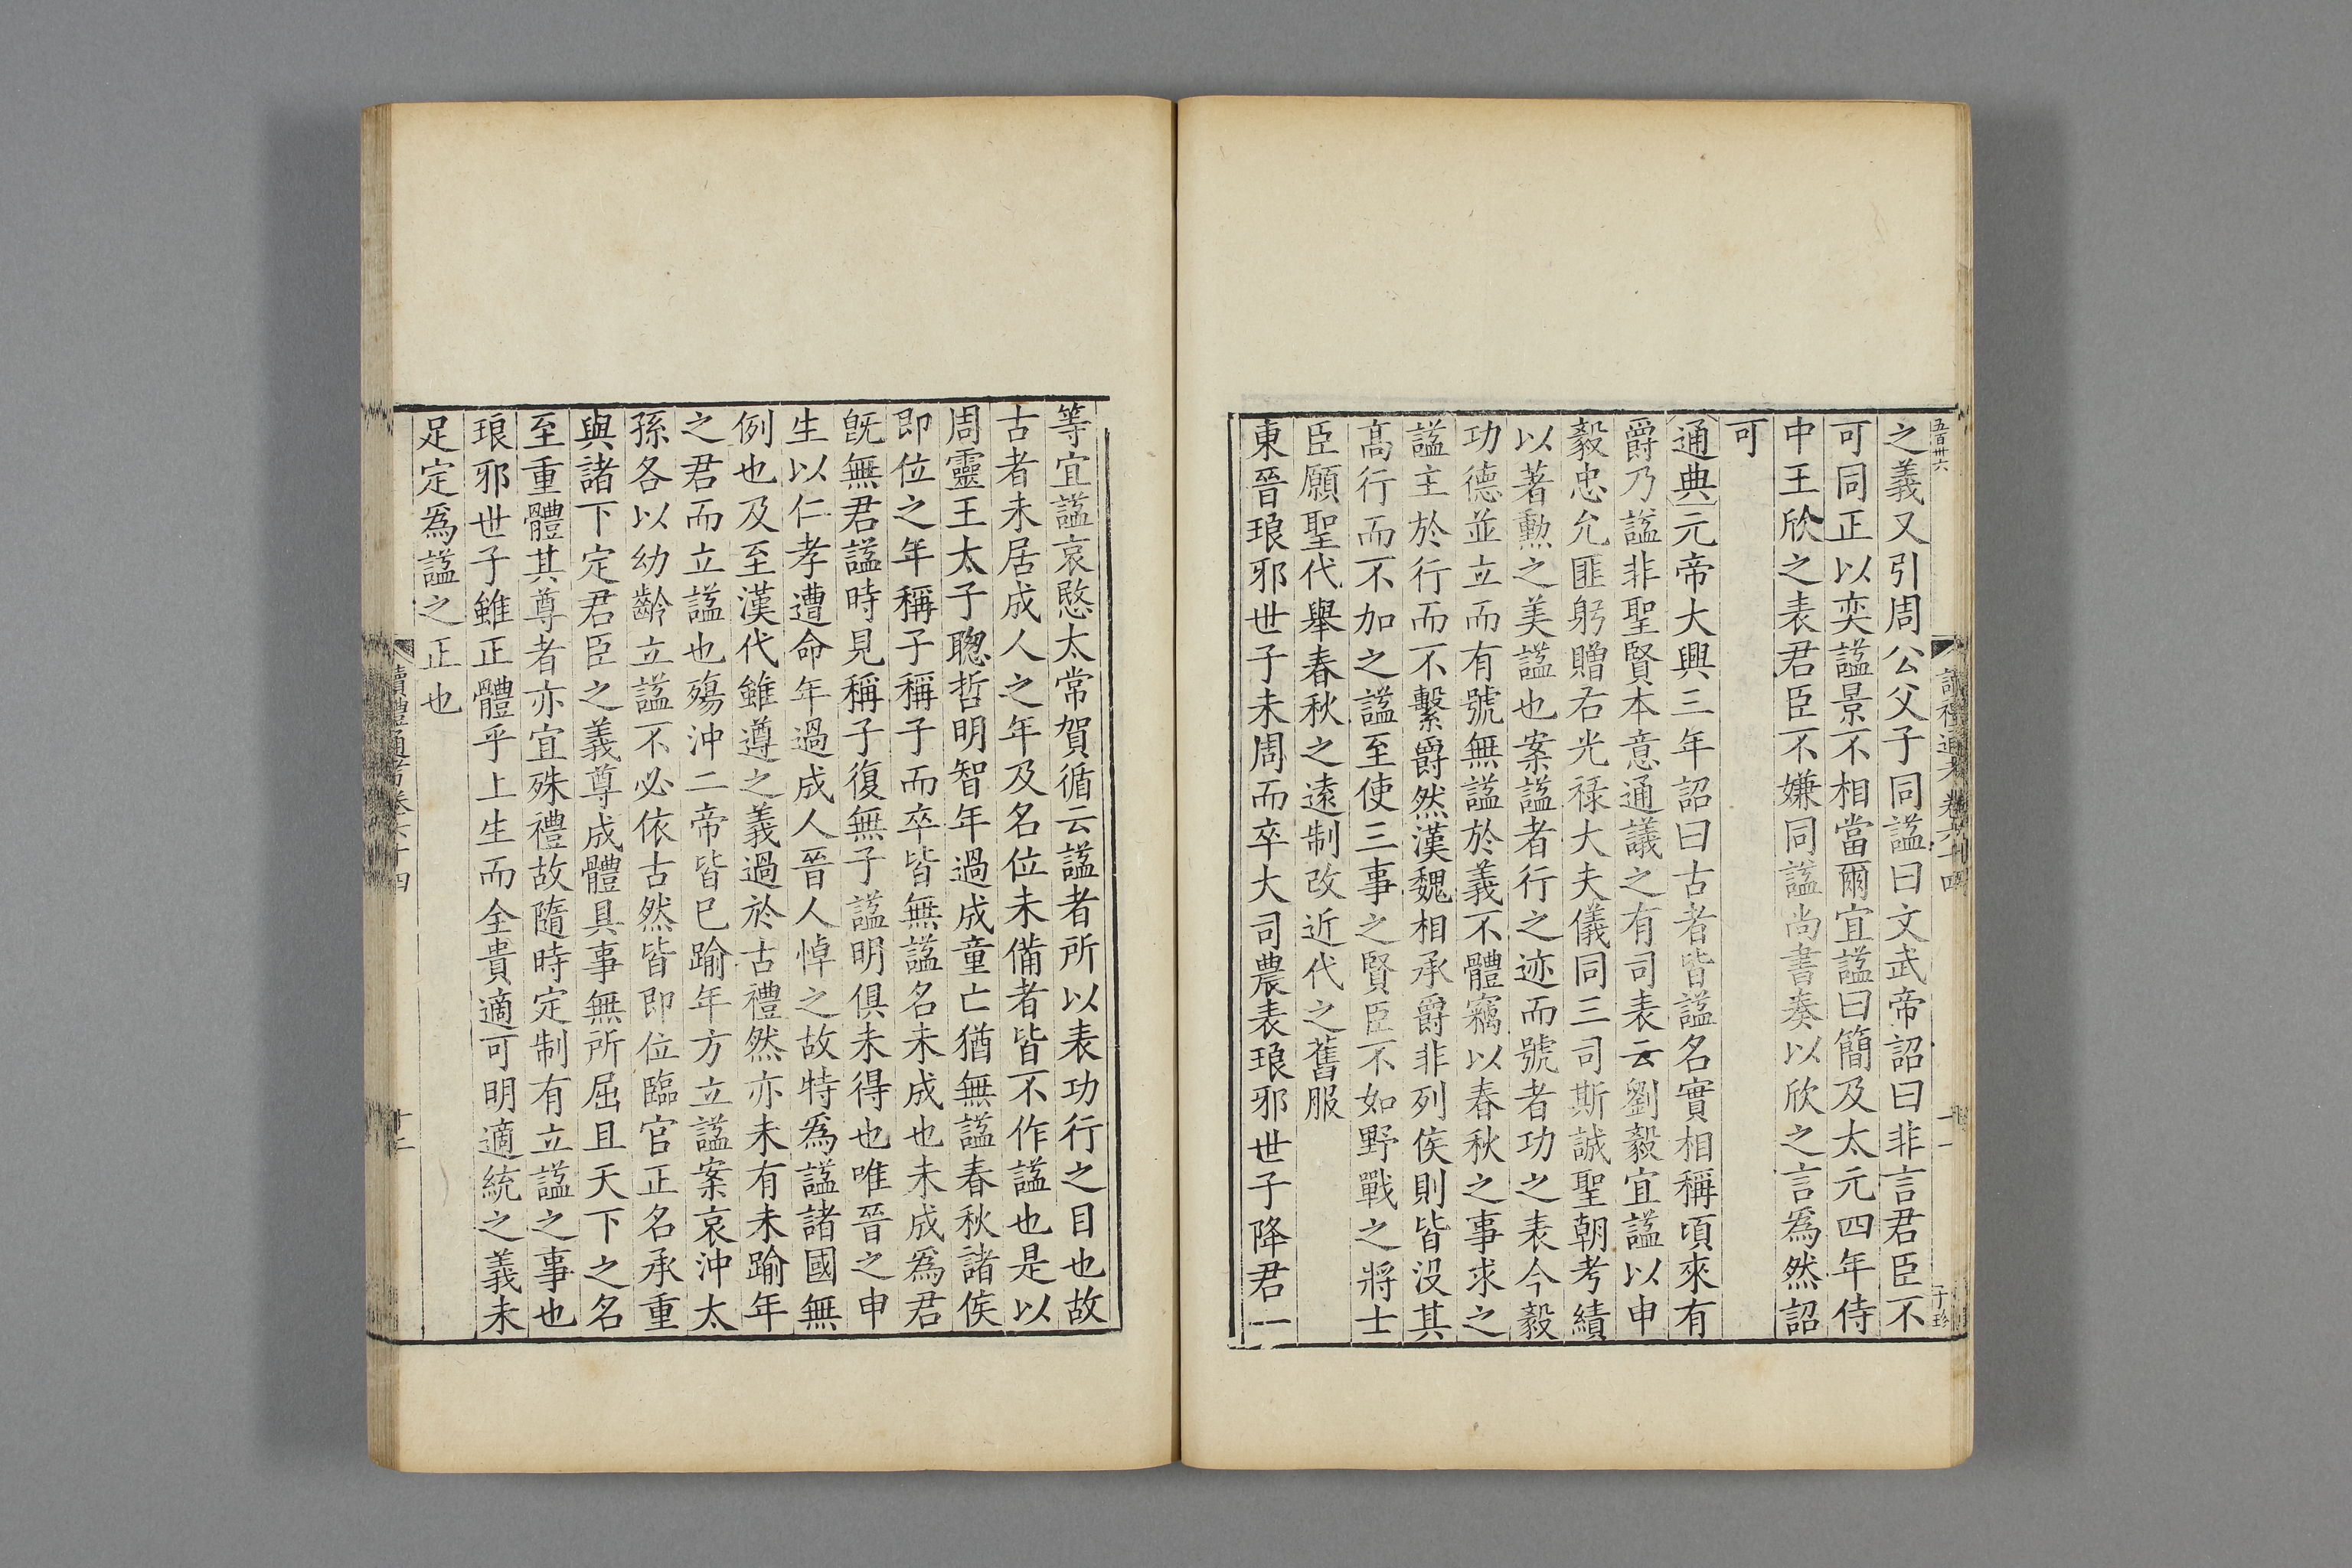 五百卅六
之義又引周公父子同謚曰文武帝詔曰非言君臣不
可同正以奕謚景不相當爾宜謚曰簡及太元四年侍
中王欣之表君臣不嫌同謚尚書奏以欣之言爲然詔
可
通典元帝大興三年詔曰古者皆謚名實相稱頃來有
爵乃謚非聖賢本意通議之有司表云劉毅宜謚以申
毅忠允匪躬贈右光祿大夫儀同三司斯誠聖朝考績
以著勳之美謚也案謚者行之迹而號者功之表今毅
功德並立而有號無謚於義不體竊以春秋之事求之
謚主於行而不繫爵然漢魏相承爵非列侯則皆没其
高行而不加之謚至使三事之賢臣不如野戰之將士
臣願聖代舉春秋之遠制改近代之舊服
東晉琅邪世子未周而卒大司農表琅邪世子降君一
等宜謚哀愍太常賀循云謚者所以表功行之目也故
古者未居成人之年及名位未備者皆不作謚也是以
周靈王太子聰哲明智年過成童亡猶無謚春秋諸侯
即位之年稱子稱子而卒皆無謚名未成也未成爲君
旣無君謚時見稱子復無子謚明俱未得也唯晉之申
生以仁孝遭命年過成人晉人悼之故特爲謚諸國無
例也及至漢代雖遵之義過於古禮然亦未有未踰年
之君而立謚也殤沖二帝皆已踰年方立謚案哀沖太
孫各以幼齡立謚不必依古然皆即位臨官正名承重
與諸下定君臣之義尊成體具事無所屈且天下之名
至重體其尊者亦宜殊禮故隨時定制有立謚之事也
琅邪世子雖正體乎上生而全貴適可明適統之義未
足定爲謚之正也
讀禮通考卷六十四